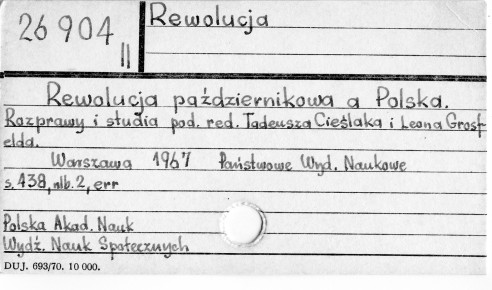 26904
II
Rewolucja
Rewolucja październikowa a Polska.
Rozprawy i studia pod. red. Tadeusza Cieślaka i Leona Grosf-
elda.
Warszawa 1967 Państwowe Wyd. Naukowe
s. 438, nlb. 2, err
Polska Akad. Nauk
Wydż. Nauk Społecznych
DUJ. 693/70. 10 000.